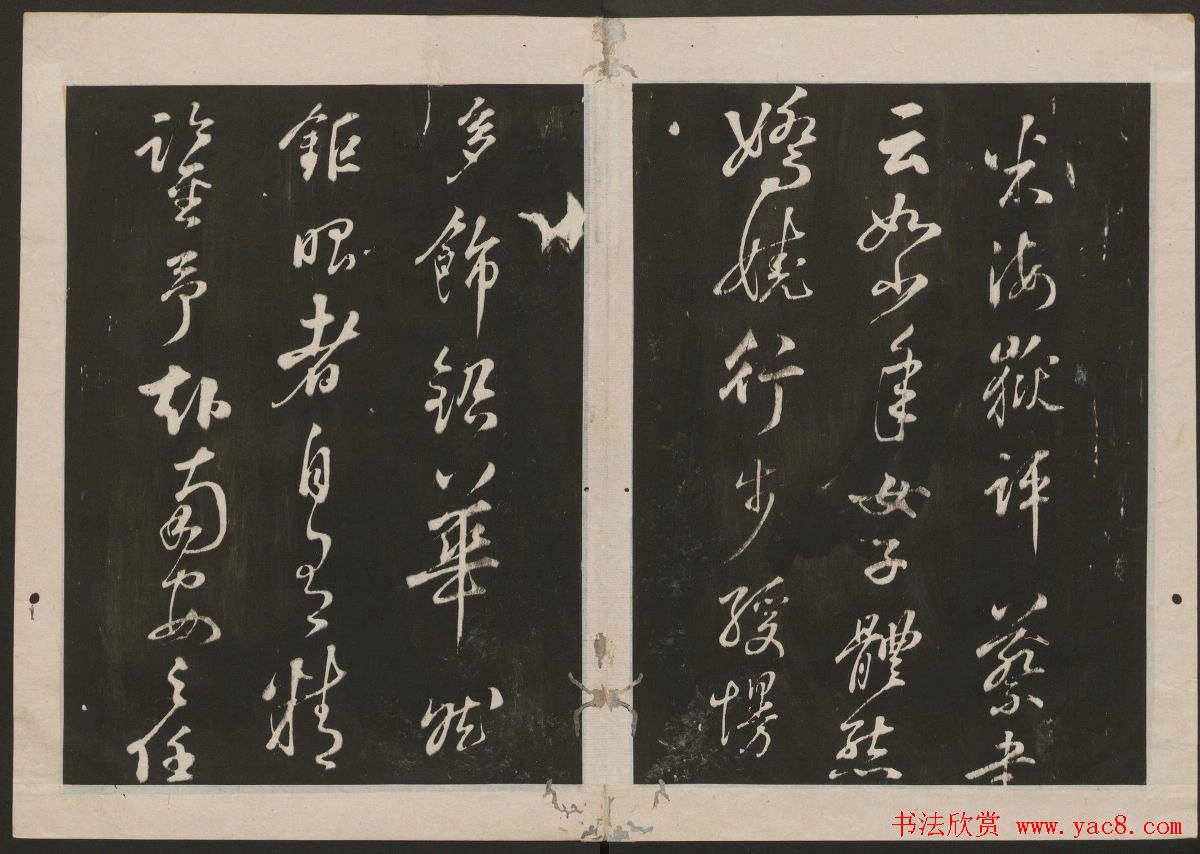 米海嶽評蔡書
云如少年女子體態
嬌嬈行步緩慢
多飾鉛華然
鉅眼者自有精
鑒予赴南安之任
书法欣赏 www.yac8.com